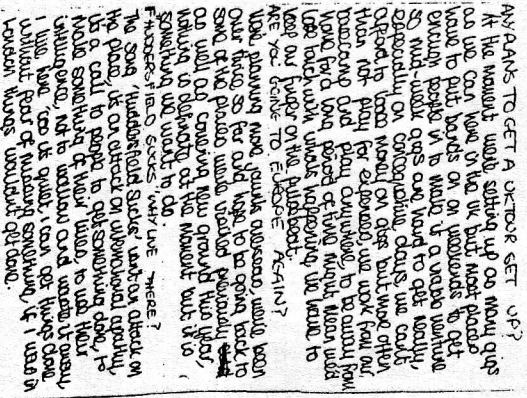 ANY PLANS TO GET A UK TOUR SET UP?
At the moment we're setting up as many gigs
as we can here in the UK but most places
have to put bands on on weekends to get
enough people in to make it a viable venture
so mid-week gigs are hard to get really,
especially on consecutive days, we can't
afford to loose money on gigs but more often
than not play for expenses, we work from our
own and play anywhere, to be away from
home for a long period of time might mean we'd
lose touch with whats happening, we have to
keep our finger on the pulsebeat.
ARE YOU GOING TO EUROPE AGAIN?
We're planning more jaunts overseas, we've been
over twice so far and hope to be going back to
some of the places we've visited previously
as well as covering new ground this year,
nothing is definate at the moment but it is
something we want to do.
IF HUDDERSFIELD SUCKS WHY LIVE THERE?
The song 'Huddersfield Sucks' isnt an attack on
the place, it's an attack on intentional apathy,
its a call to people to get something done, to
make something of their lives, to use their
intelligence, not to wallow and waste it away,
I live here coz it's quiet, I can get things done
without fear of missing something, if I was in
London things wouldn't get done.